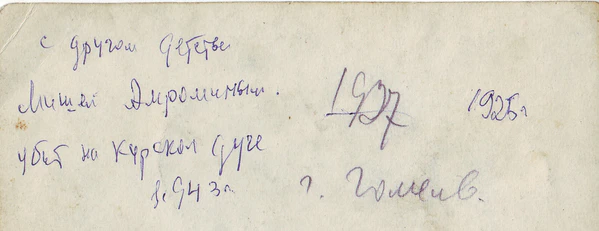 с другом детства
Мишей Амроминым.
убит на Курской дуге
в 1943 г.
1927
1925 г
г. Гомель.